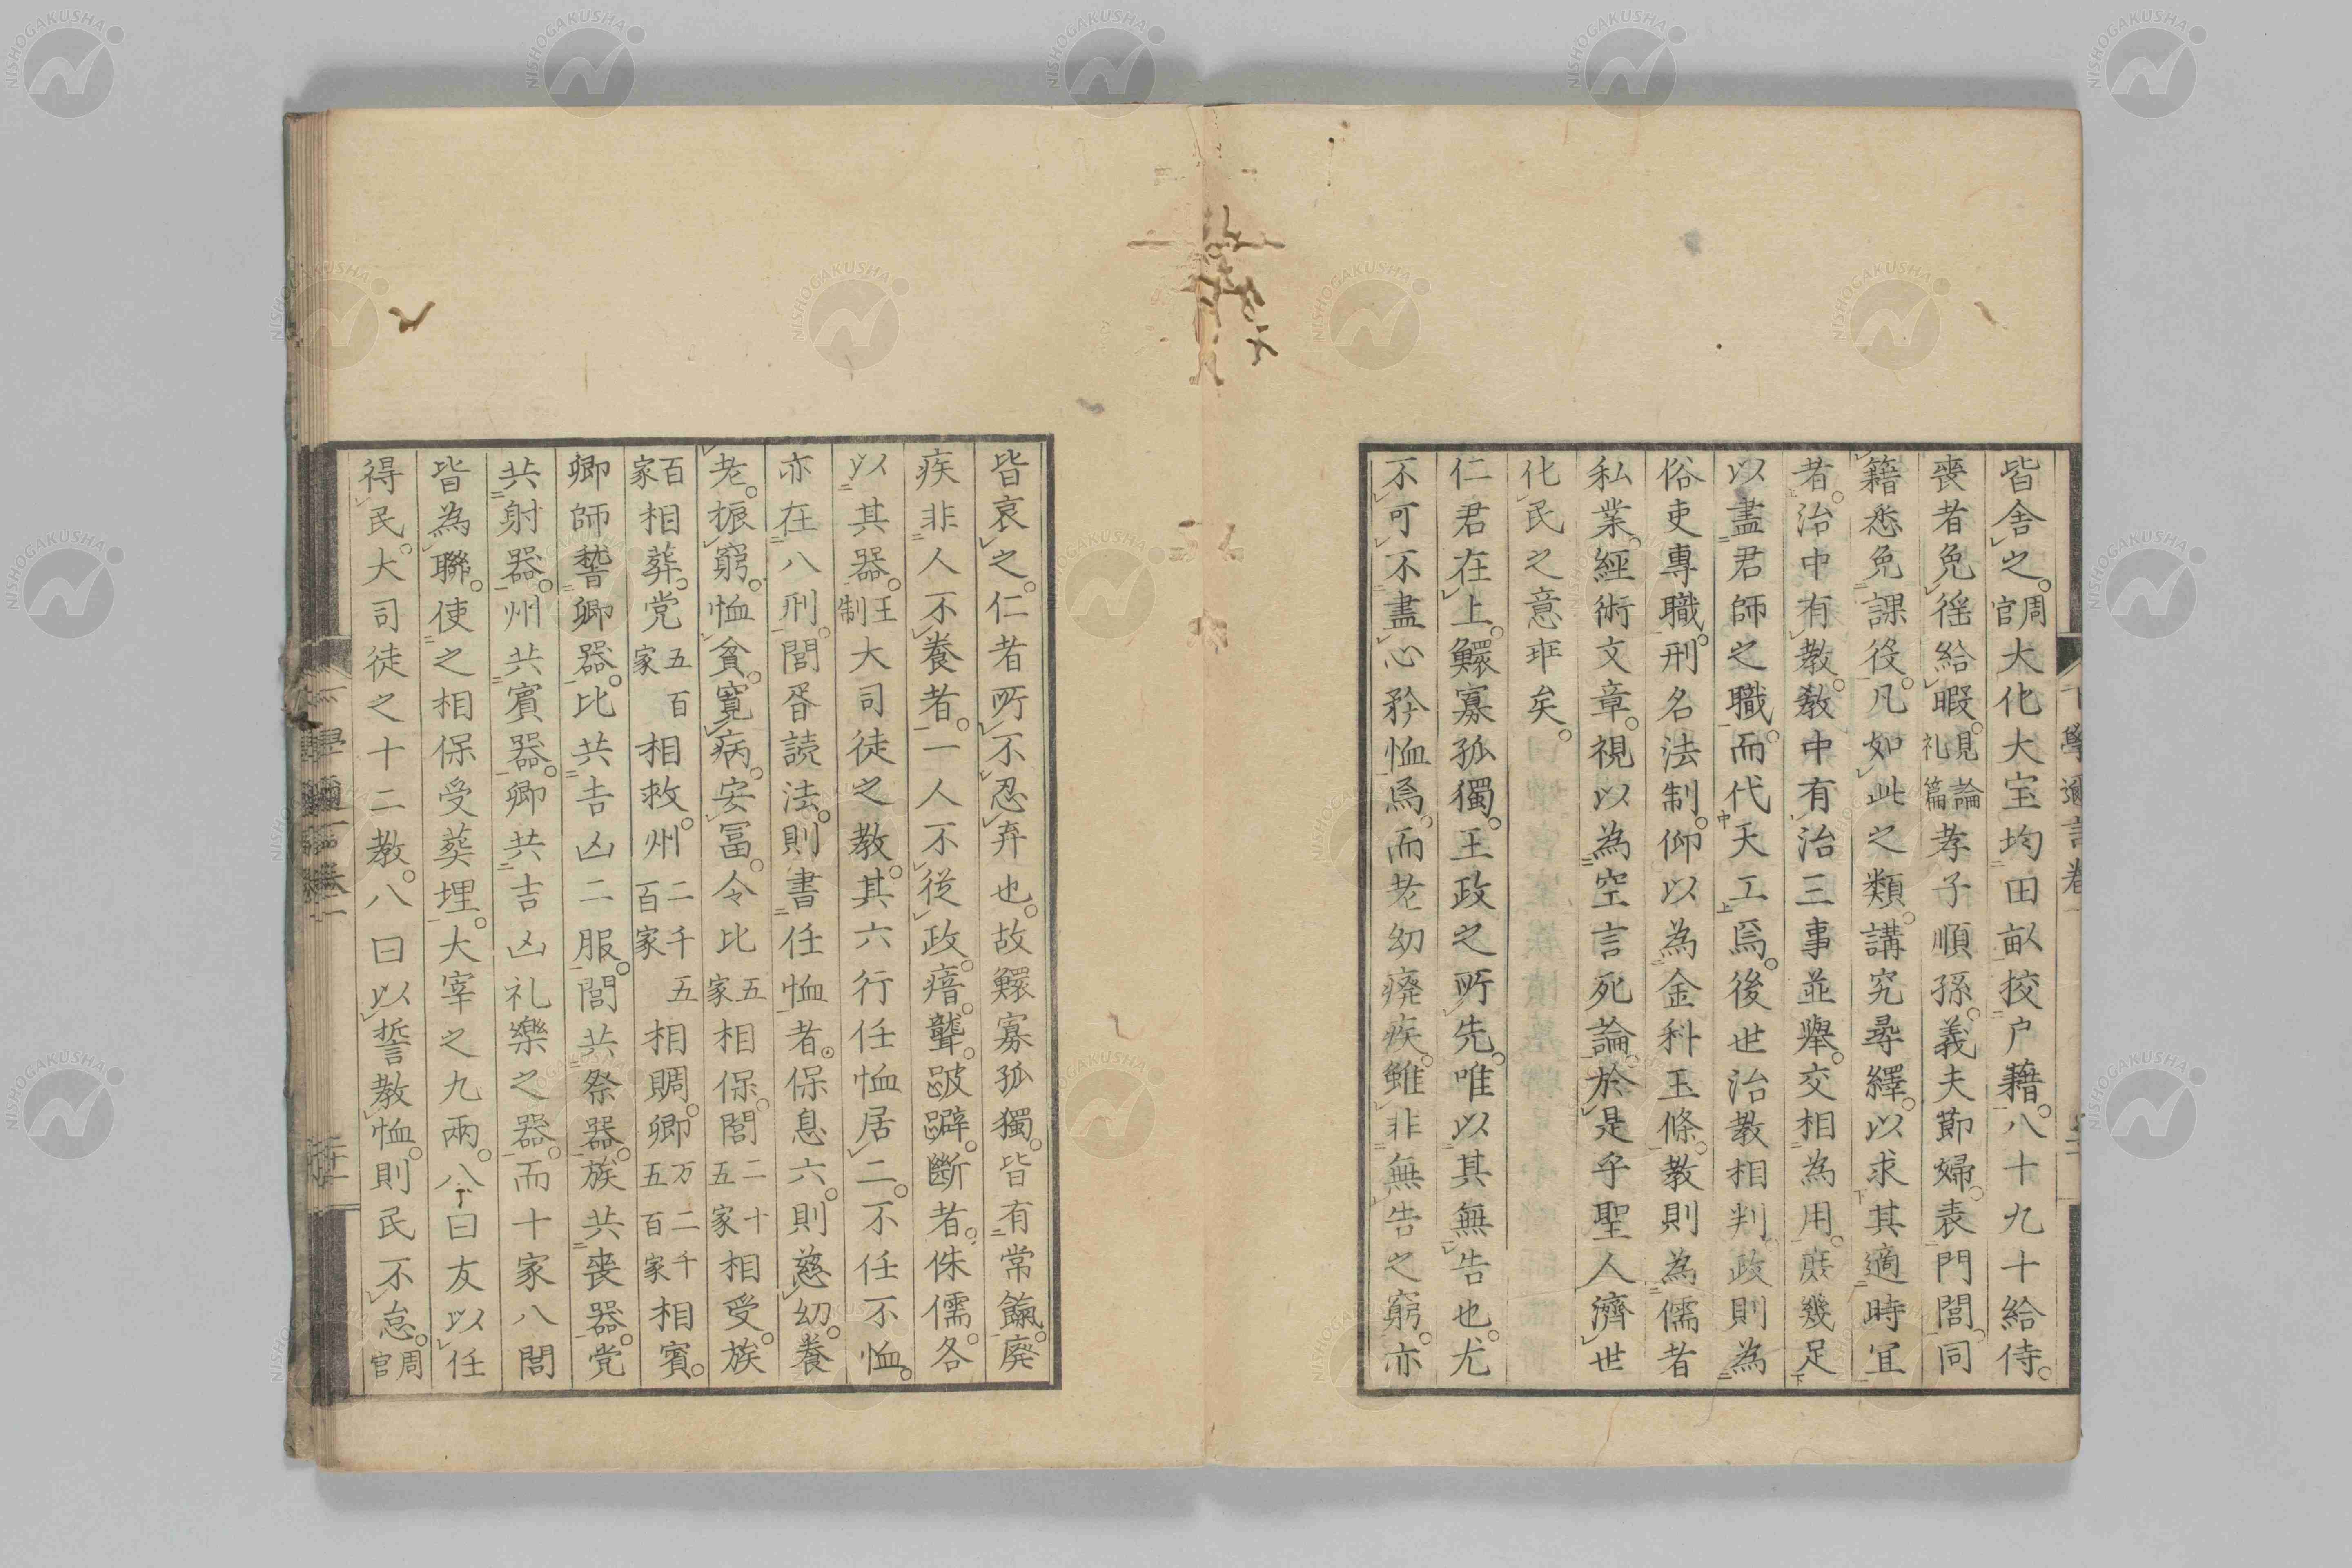 皆舎之。周官大化大宝均田畝挍户藉。八十九十給侍。
喪者免徭給暇。見論礼篇孝子順孫。義夫節婦。表門閭。同
籍悉免課役。凡如此之類。講究尋繹。以求其適時宜
者。治中有教。教中有治三事並舉。交相為用。庶幾足
以盡君師之職。而代天工焉。後世治教相判。政則為
俗吏專職。刑名法制。仰以為金科玉條。教則為儒者
私業。經術文章。視以為空言死論。於是乎聖人濟世
化民之意乖矣。
仁君在上。鰥寡孤獨。王政之所先。唯以其無告也。尤
不可不盡心矜恤焉。而老幼癈疾。雖非無告之窮。亦
皆哀之。仁者所不忍弃也。故鰥寡孤獨。皆有常餼。廢
疾非人不養者。一人不從政。瘖。聾。跛躃。斷者。侏儒。各
以其器。王制大司徒之教。其六行任恤居二。不任不恤。
亦在八刑。閭胥読法。則書任恤者。保息六。則慈幼。養
老。振窮。恤貧。寬病。安冨。令比五家相保。閭二十五家相受。族
百家相葬。党五百家相救。州二千五百家相賙。卿万二千五百家相賓。
卿師誓卿器。比共吉凶二服。閭共祭器。族共喪器。党
共射器。州共賓器。卿共吉凶礼樂之器。而十家八閭
皆為聯。使之相保受葬埋。大宰之九兩。八曰友以任
得民。大司徒之十二教。八曰以誓教恤。則民不怠。周官